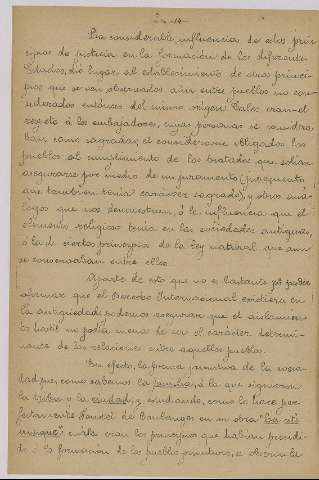 -14-
La considerable influencia de estos prin-
cipios de justicia en la formación de los diferentes
Estados, dió lugar al establecimiento de otros princi-
pios que se ven observados aún entre pueblos no con-
siderados entónces del mismo origen. Tales eran el
respeto á los embajadores, cuyas personas se considera-
ban como sagradas; el considerarse obligados los
pueblos al cumplimiento de los tratados que solian
asegurarse por medio de un juramento (juramento
que tambien tenía carácter sagrado), y otros aná-
logos que nos demuestran, ó la influencia que el
elemento religioso tenía en las sociedades antiguas,
ó la de ciertos principios de la ley natural que aun
se conservaban entre ellos.
Aparte de esto que no es bastante para poder
afirmar que el Derecho Internacional existiera en
la antigüedad, podemos asegurar que el aislamien-
to hostil no podía menos de ser el carácter determi-
nante de las relaciones entre aquellos pueblos.
En efecto, la forma primitiva de la socie-
dad fue, como sabemos la familia, á la que siguieron
la tribu y la ciudad; y estudiando, como lo hace per-
fectamente Fustel de Coulanges en su obra "La cité
antique" cuáles eran los principios que habían presidi-
do á la formación de los pueblos primitivos, se